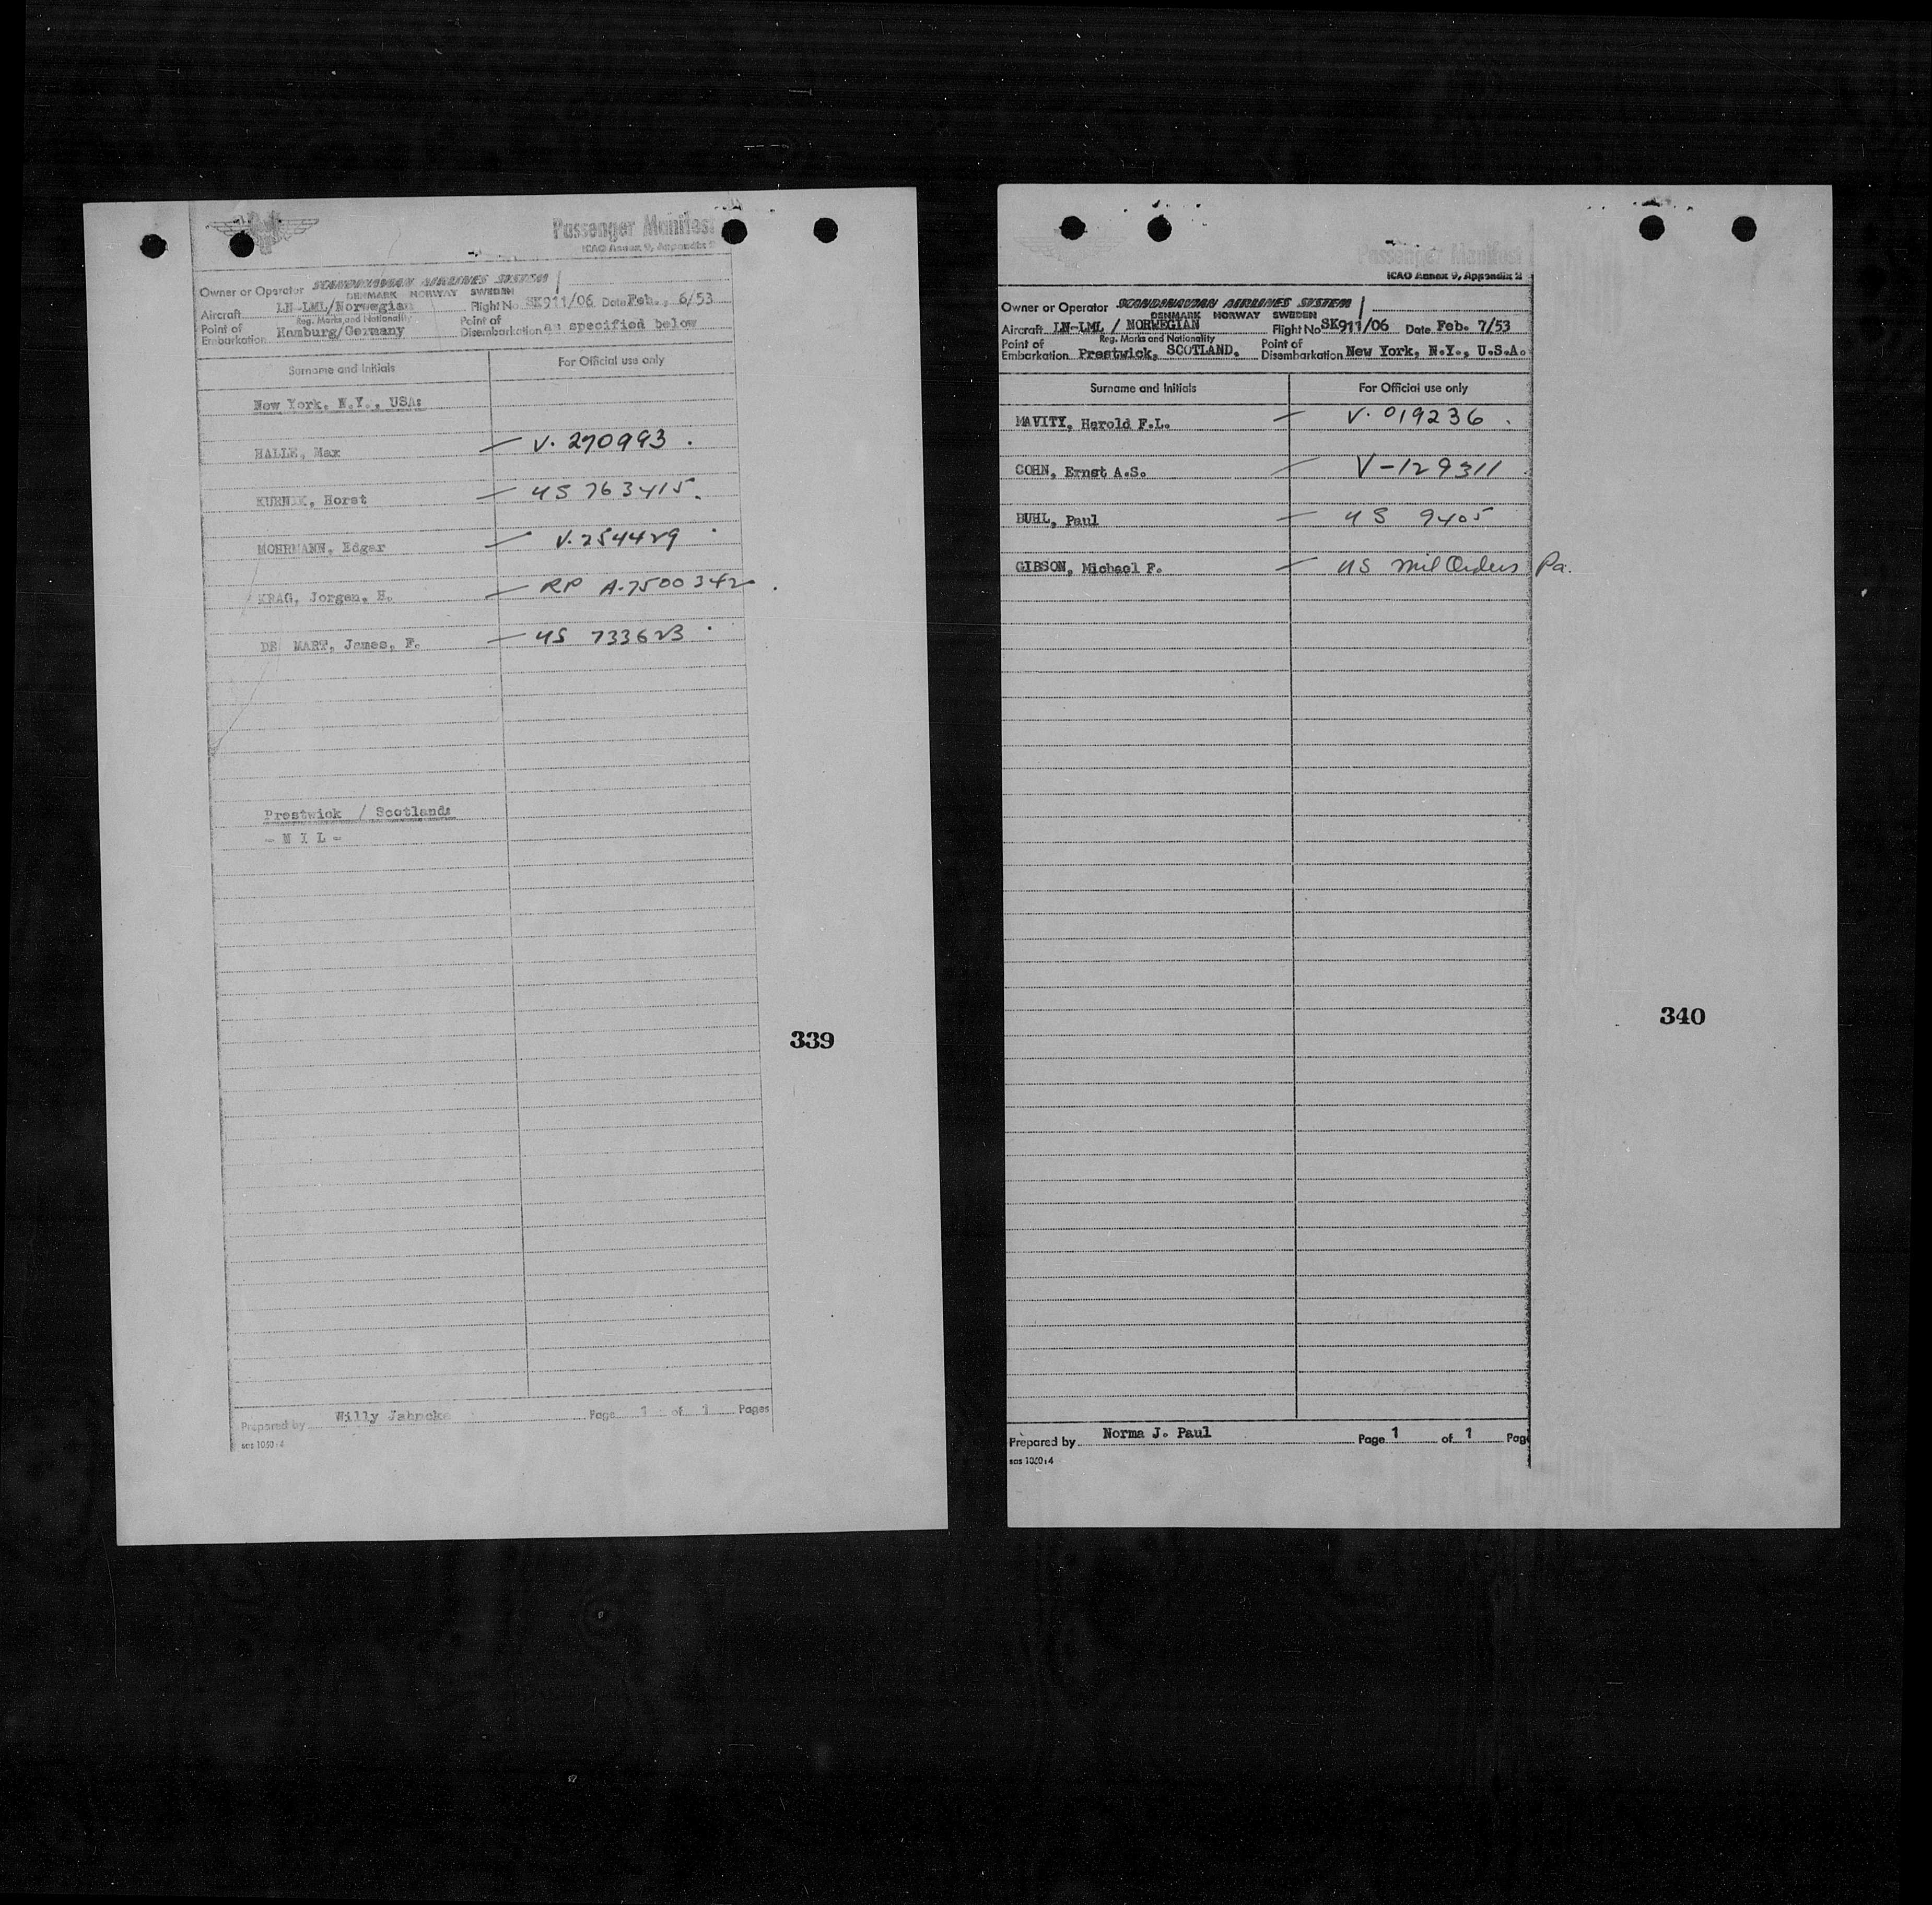 Passenger Manifest
ICAO Annex 9, Appendix 2
Owner or Operator SCANDINAVIAN AIRLINES SYSTEM
DENMARK NORWAY SWEDEN
Aircraft LN-LML/Norwegian Flight No. SK911/06 Date Feb., 6/53
Reg. Marks and Nationality
Point of Embarkation Hamburg/Germany Point of Disembarkation as specified below
Surname and Initials For Official use only
New York, N.Y., USA:
HALLE, Max — V. 270993.
KURNIK, Horst — US 763415.
MOHRMANN, Edgar — V. 254429.
KRAG, Jorgen, H. — RP A-7500342.
DE MART, James, F. — US 733623.
Prestwick / Scotland:
- N I L -
339
Prepared by Willy Jahncke Page 1 of 1 Pages
sas 1050:4
Passenger Manifest
ICAO Annex 9, Appendix 2
Owner or Operator SCANDINAVIAN AIRLINES SYSTEM
DENMARK NORWAY SWEDEN
Aircraft LN-LML / NORWEGIAN Flight No SK911/06 Date Feb. 7/53
Reg. Marks and Nationality
Point of Embarkation Prestwick, SCOTLAND. Point of Disembarkation New York, N.Y., U.S.A.
Surname and Initials For Official use only
MAVITY, Harold F.L. — V. 019236.
COHN, Ernst A.S. — V-129311
BUHL, Paul — US 9405
GIBSON, Michael F. — US Mil Orders Pa.
340
Prepared by Norma J. Paul Page 1 of 1 Pag
sas 1050:4